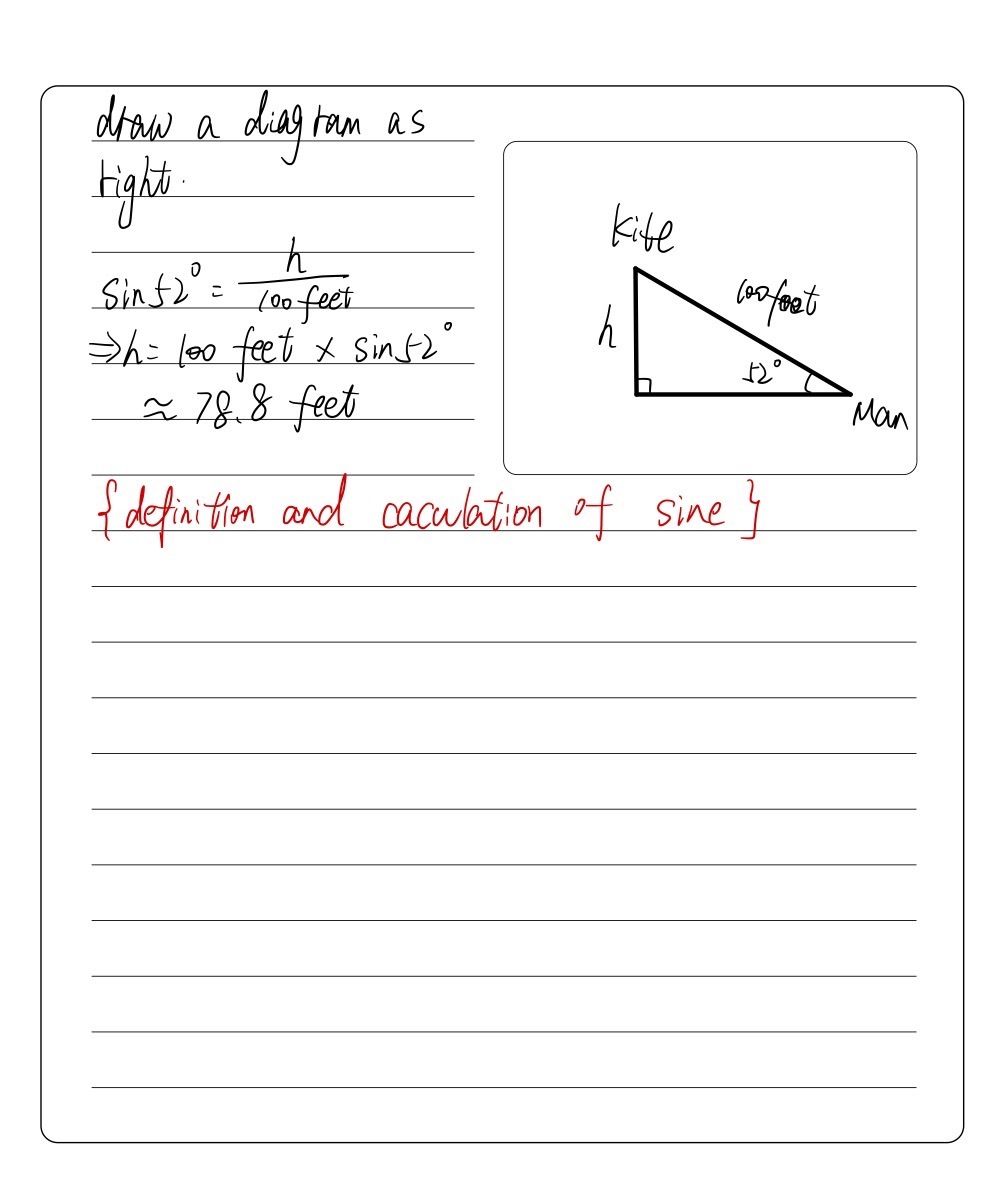 draw a diagram as
right.
sin52° = h / 100 feet
⇒h = 100 feet × sin52°
≈ 78.8 feet
Kite
100 feet
h
52°
Man
{definition and caculation of sine}